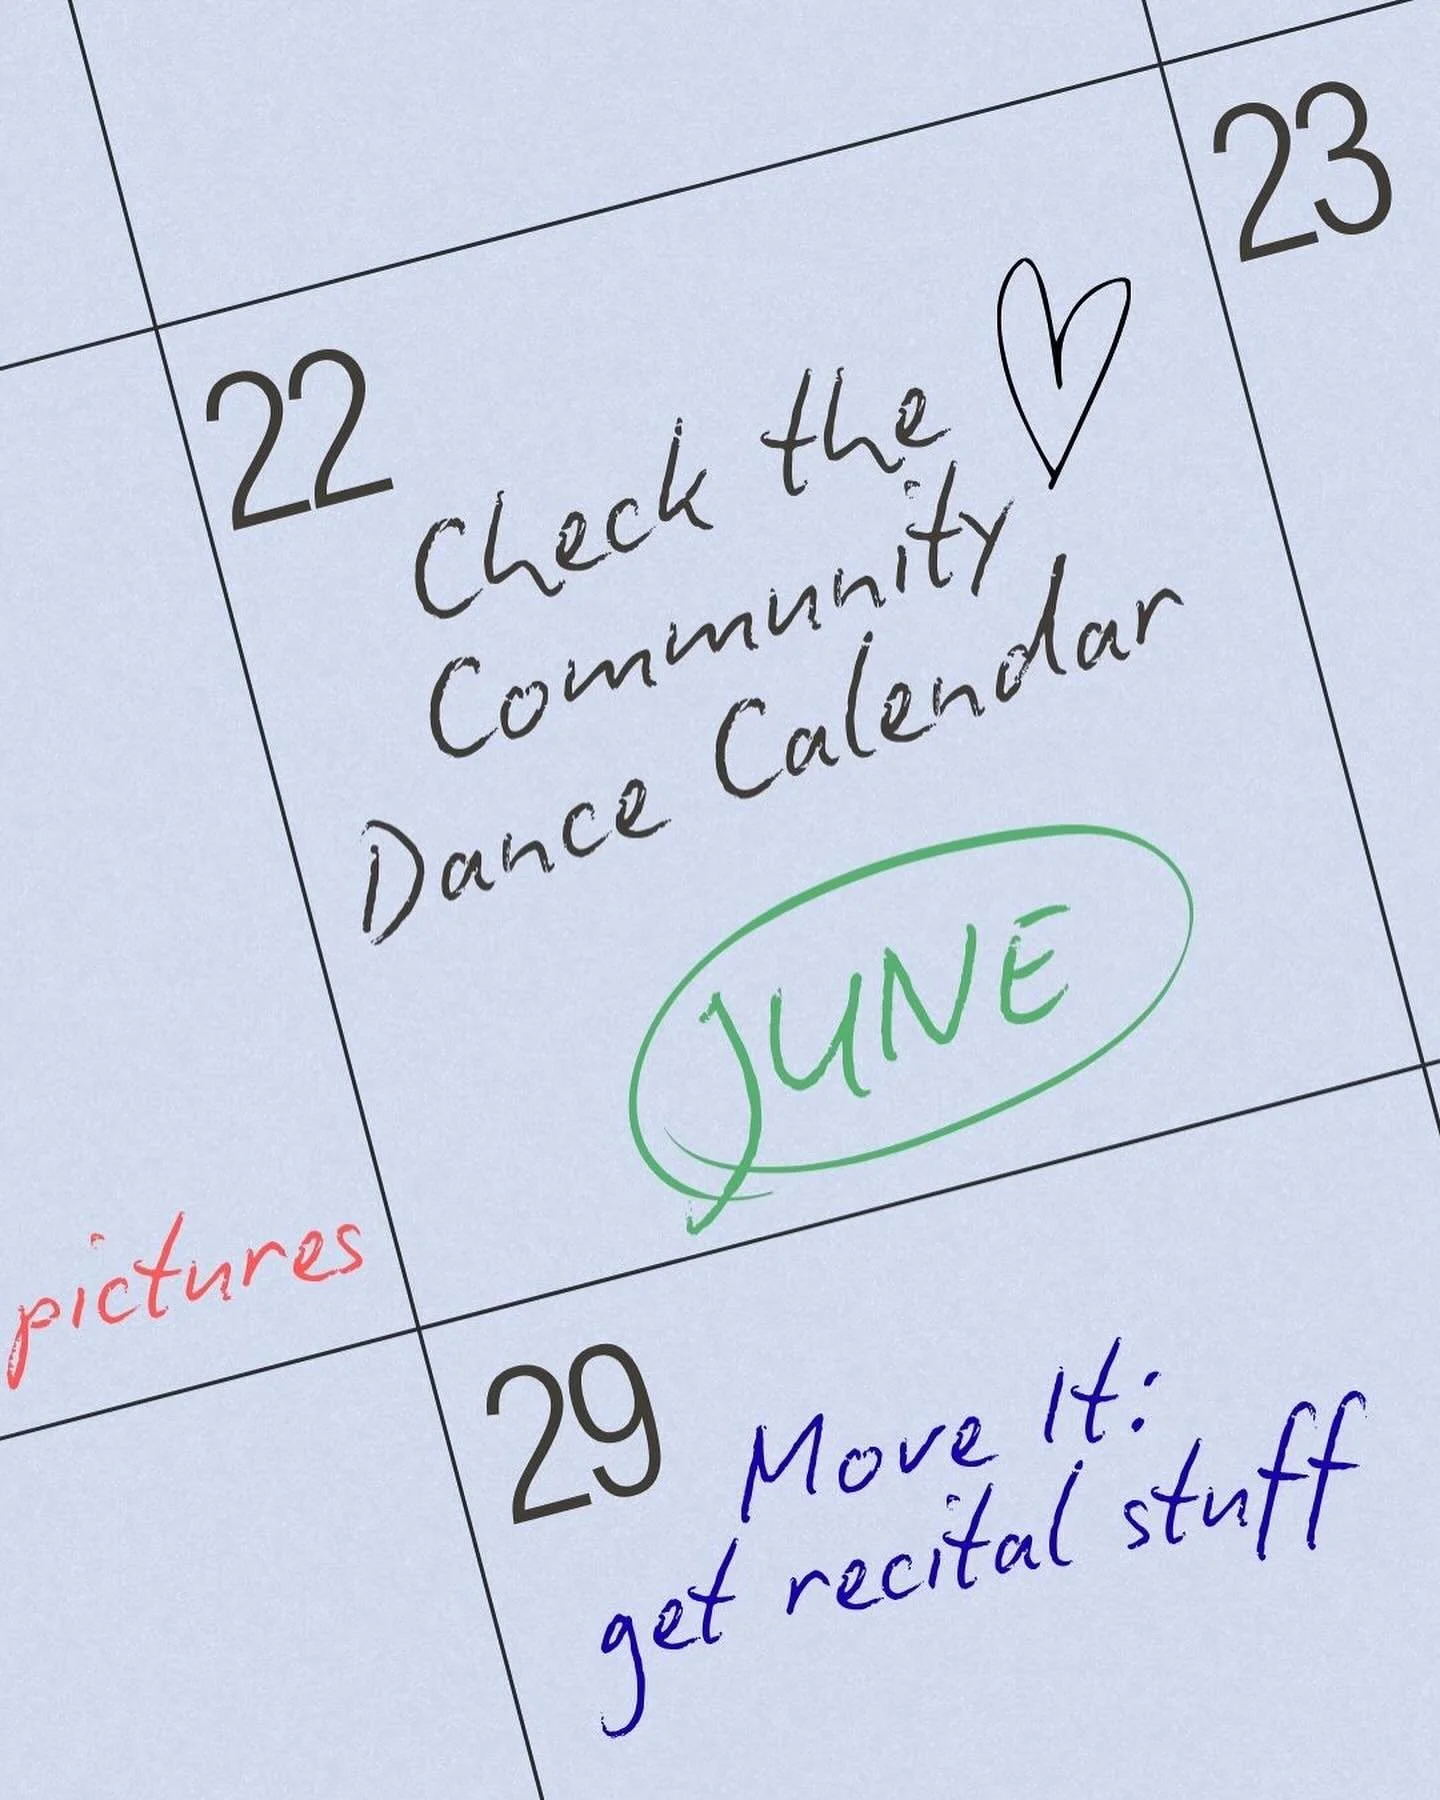 22
23
Check the
Community
Dance Calendar
JUNE
pictures
29
Move It:
get recital stuff